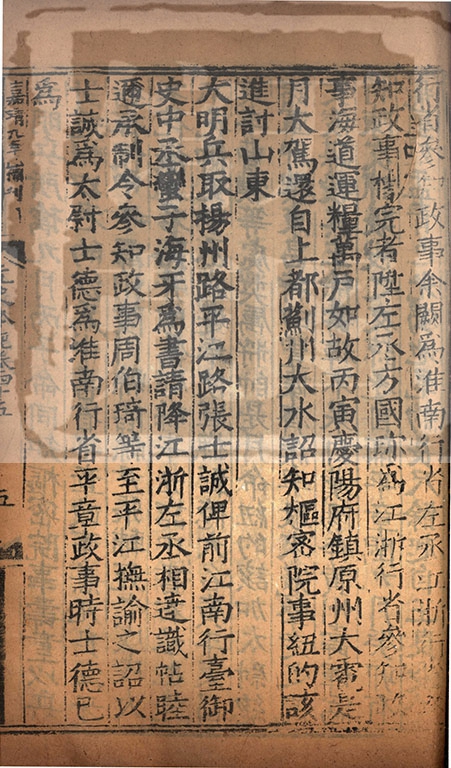 行省參知政事余闕爲淮南行省左丞江浙行省參知
知政事楊完者陞左丞方國珎爲江浙行省參知政
事海道運糧萬戶如故丙寅慶陽府鎮原州大雹是
月大駕還自上都薊州大水詔知樞宻院事紐的該
進討山東
大明兵取楊州路平江路張士誠俾前江南行臺御
史中丞蠻子海牙爲書請降江浙左丞相達識帖睦
邇承制令參知政事周伯琦等至平江撫諭之詔以
士誠爲太尉士德爲淮南行省平章政事時士德已
爲
嘉靖九年補刊
元史本紀卷四十五
五